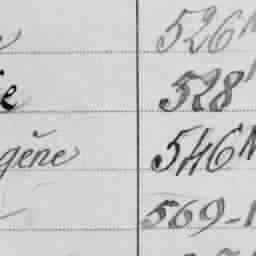 526
e 528
gène 546
569-1